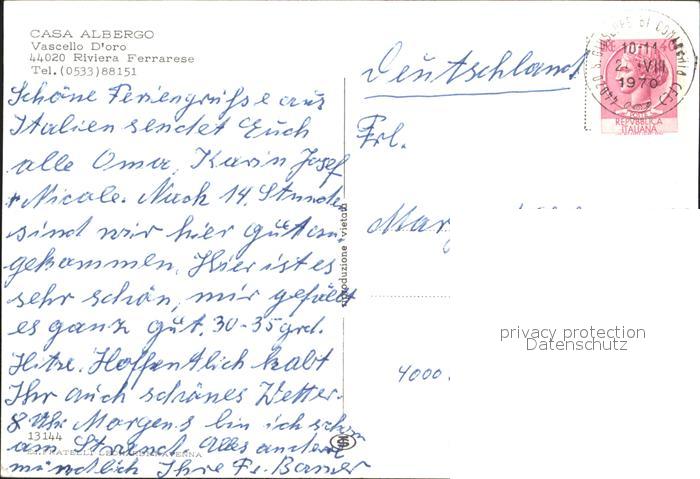 CASA ALBERGO
Vascello D'oro
44020 Riviera Ferrarese
Tel. (0533) 88151
Schöne Feriengrüße aus
Italien sendet Euch
alle Oma, Karin, Josef
+ Nicole. Nach 14 Stunden
sind wir hier gut an-
gekommen. Hier ist es
sehr schön, mir gefällt
es ganz gut, 30-35 grd.
Hitze. Hoffentlich habt
Ihr auch schönes Wetter.
8 Uhr Morgens bin ich schon
am Strand. Alles andere
mündlich Ihre Fr.
13144
FRATELLI RAVENNA
riproduzione vietata
Deutschland
Frl.
4000
LIRE 40
REPVBBLICA
ITALIANA
10-11
VIII
1970
44020 S. GIUSEPPE DI COMACCHIO (FE)
privacy protection
Datenschutz